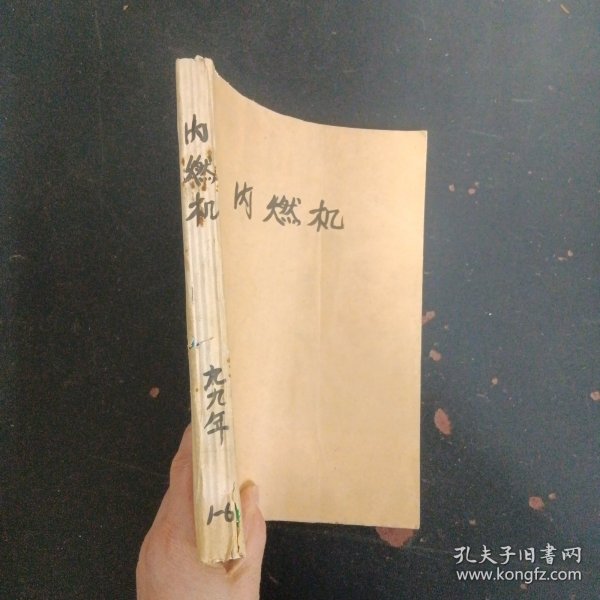 内燃机
九九年
1-6
内燃机
孔夫子旧書网
www.kongfz.com